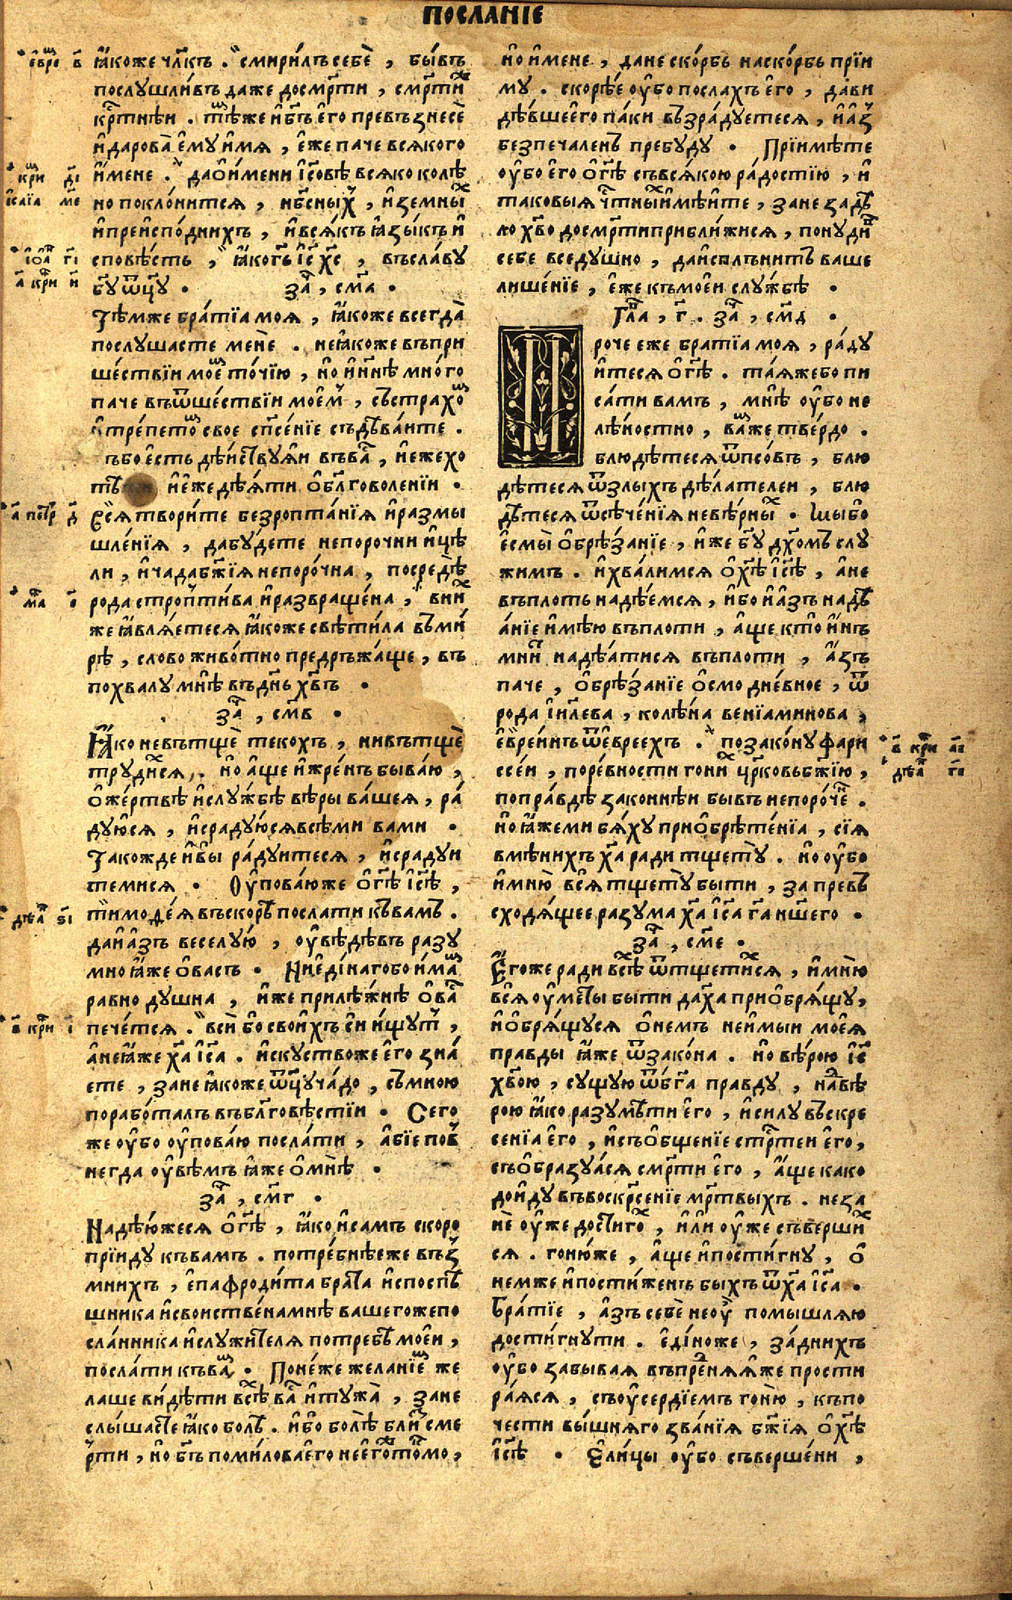 ПОСЛАНІЕ
ꙗ҆́коже чл҃къ . смири́лъ себѐ , бы́въ
послꙋшли́въ даже досмр҃ти , смр҃ти
крⷭ҇тнѣи . тѣ́мже и҆ бг҃ъ его превъзнесѐ
и҆ дарова̀ є҆мꙋ и҆́мѧ , є҆́же паче всѧ́кого
и҆́мене . дао и҆́мени і҆с҃овѣ всѧко колѣ
но поклони́тсѧ , нб҃сныⷯ , и҆ земныⷯ
и҆ преиспо́днихъ , и҆ всѧ́къ ꙗ҆зы́къ и҆
сповѣ́сть , ꙗ҆́ко гь҃ і҆с҃ хс҃ , въ сла́вꙋ
бг҃ꙋ ѿц҃ꙋ .
за҃ , сма .
Тѣ́мже бра́тїа моѧ , ꙗ҆́коже всегда̀
послꙋшасте менѐ . не ꙗ҆́коже въ при
ше́ствїи моеⷨ то́чїю , но и҆ ннѣ мно́го
паче въ ѿше́ствїи мое́мъ , съ страхоⷨ
и҆ тре́петоⷨ свое сп҃се́нїе съдѣ́ваите .
бг҃ъ бо е҆сть дѣ́иствꙋѧи въ ваⷭ҇ , и҆ еже хо
тѣ и҆ еже дѣ́ѧти о҆ бл҃говоленїи .
всѧ твори́те без ропта́нїѧ и҆ размы
шле́нїѧ , да бꙋ́дете непорочни и҆ цѣ
ли , и҆ чада бж҃їѧ непоро́чна , посредѣ̀
рода стро́птива и҆ развраще́на , в ниⷯ
же ꙗ҆влѧ́етесѧ ꙗ҆́коже свѣти́ла въ ми́
рѣ , слово живо́тно предръжа́ще , въ
похвалꙋ мнѣ̀ въ днь҃ хв҃ъ .
за҃ , смв .
Ꙗ҆́ко не вътщѐ текохъ , ни вътщѐ
трꙋди́хсѧ . но а҆ще и҆ жре́нъ быва́ю ,
о҆ же́ртвѣ и҆ слꙋ́жбѣ вѣ́ры ва́шеѧ , ра́
дꙋюсѧ , и҆ срадꙋ́юсѧ всѣ́ми вами .
Такожде и҆ вы̀ ра́дꙋитесѧ , и҆ срадꙋи
темисѧ . Оу҆пова́юже о҆ гс҃ѣ і҆с҃ѣ ,
тимоѳе́ѧ въскорѣ посла́ти къ вамъ .
да и҆ а҆́зъ веселꙋ́ю , оу҆вѣ́дѣвъ разꙋ
мно ꙗ҆́же о҆ васъ . Ни еди́наго бо и҆́маⷨ
равно дꙋшна , и҆́же прилѣ́жнѣ о҆ ваⷭ҇
пече́тсѧ . вси бо свои́хъ си и҆́щꙋтъ ,
а҆ не ꙗ҆́же ха҃ і҆с҃а . и҆скꙋство же его зна́
ете , зане ꙗ҆́коже ѿц҃ꙋ ча́до , съ мною
порабо́талъ въ бл҃говѣ́стїи . Сего
же оу҆бо оу҆пова́ю посла́ти , а҆бїе по
негда оу҆вѣ́мъ ꙗ҆́же о҆ мнѣ̀ .
за҃ , смг .
Надѣ́южесѧ о҆ гс҃ѣ , ꙗ҆́ко и҆ самъ скоро
прїидꙋ къ вамъ . потре́бнѣе же възъ
мнихъ , е҆пафроди́та бра́та и҆ споспѣ
шника и҆ свои́нстве́на мнѣ вашегоже по
сла́нника и҆ слꙋжи́телѧ потребѣ мое́и ,
посла́ти къ ваⷨ . Поне́же желанїеⷨ же
лаше ви́дѣти всѣ̀ ваⷭ҇ и҆ тꙋжа̀ , зане
слы́шасте ꙗ҆ко болѣ . и҆ бо болѣ̀ бли́з сме
рти , но бг҃ъ помилова его не егоⷤ то́кмо ,
но и҆ мене , да не ско́рбь на ско́рбь прїи
мꙋ . скорѣ́е оу҆бо послахъ е҆го , да ви
дѣ́вше е҆го па́ки възра́дꙋетесѧ , и҆ а҆́з
безпечаленъ пребꙋдꙋ . Прїимѣ́те
оу҆бо его о҆ гс҃ѣ съ всѧкою ра́достїю , и҆
таковыѧ чⷭ҇тны и҆мѣ́ите , зане за дѣ
ло хв҃о до смр҃ти прибли́жисѧ , понꙋдиⷡ
себе вседꙋшно , да и҆спъ́лънитъ ваше
лише́нїе , е҆́же къ мое́и слꙋжбѣ .
Гла҃ , г҃ . за҃ , смд .
Проче еже братїа моѧ , ра́дꙋ
итесѧ о҆ гс҃ѣ . та́ѧжебо пи
са́ти вамъ , мнѣ̀ оу҆бо не
лѣ́ностно , ваⷨже тве́рдо .
блюдѣ́тесѧ ѿ псо́въ , блю
дѣ́тесѧ ѿ злы́хъ дѣ́лателеи , блю
дѣ́тесѧ ѿ сѣче́нїѧ невѣ́рныⷯ . мы бо
е҆смы̀ о҆брѣ́занїе , и҆же бг҃ꙋ дх҃омъ слꙋ
жимъ . и҆ хва́лимсѧ о҆ хс҃ѣ і҆с҃ѣ , а҆ не
въ плоть надѣ́емсѧ , и҆ бо и҆ а҆́зъ надѣ
ѧ́нїе и҆мѣ́ю въ плоти , а҆ще кто и҆́нъ
мни́тъ надѣ́ѧтисѧ въ плоти , а҆́зъ
паче , о҆брѣ́занїе о҆смодне́вное , ѿ
рода і҆и҃лева , колѣ́на венїаминова ,
е҆вре́инъ ѿ е҆вреехъ . по законꙋ фари
ссе́и , по ре́вности гониⷯ цр҃ковь бж҃їю ,
по пра́вдѣ зако́ннѣи бывъ непоро́чеⷩ .
но ꙗ҆́же ми бѧ́хꙋ прио҆брѣте́нїа , сїѧ
вмѣни́хъ ха҃ ради тщетꙋ̀ . но оу҆бо
и҆ мню̀ всѧ тщетꙋ̀ бы́ти , за превъ
сходѧ́щее разꙋма ха҃ і҆с҃а га҃ н҃шего .
за҃ , сме .
Е҆гоже ради всѣ̀ ѿтщети́хсѧ , и҆ мню̀
всѧ оу҆меты бы́ти да ха҃ прио҆брѧ́щꙋ ,
и҆ о҆брѧ́щꙋсѧ о҆ немъ не и҆мыи моеѧ̀
правды ꙗ҆́же ѿ зако́на . но вѣ́рою і҆с҃
хв҃ою , сꙋщꙋю ѿ бг҃а правдꙋ , на вѣ
рою ꙗ҆́ко разꙋмѣ́ти е҆го , и҆ силꙋ въскре
сенїа е҆го , и҆ съо҆бщенїе стрⷭ҇теи е҆го ,
съо҆бразꙋ́ѧсѧ смр҃ти е҆го , а҆́ще како
дои҆дꙋ въ воскрⷭ҇сенїе мр҃твыхъ . не за
нѐ оу҆же достигоⷯ , и҆ли оу҆же съвершиⷯ
сѧ . гоню́же , а҆ще и҆ пости́гнꙋ , о҆
немже и҆ пости́женъ быхъ ѿ ха҃ і҆с҃а .
Бра́тїе , а҆́зъ себѐ не оу҆̀ помышлѧю
дости́гнꙋти . еди́ноже , за́днихъ
оу҆бо забываѧ въ пре́днѧѧже прости
ра́ѧсѧ , съ оу҆се́рдїемъ гоню̀ , къ по
чести вы́шнѧго зва́нїѧ бж҃їѧ о҆ хс҃ѣ
і҆с҃ѣ . Є҆ли́цы оу҆бо съверше́ни ,